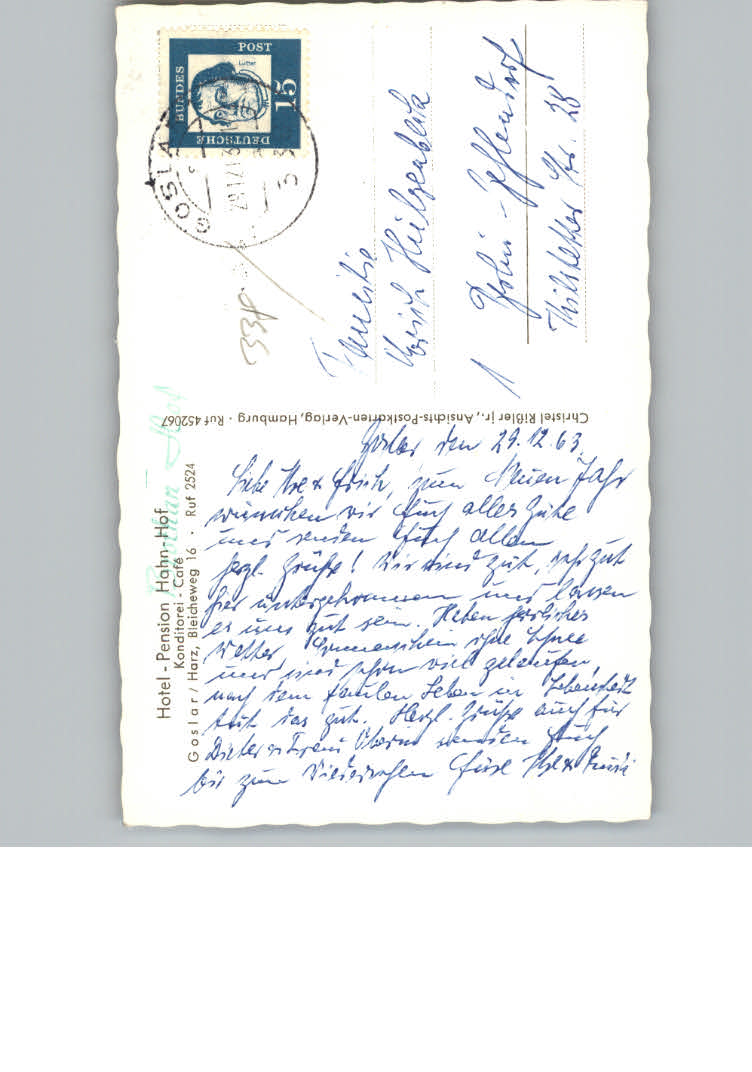 Hotel - Pension Hahn-Hof
Konditorei - Café
Goslar / Harz, Bleicheweg 16 · Ruf 2524
Christel Rißler jr., Ansichts-Postkarten-Verlag, Hamburg · Ruf 452067
DEUTSCHE BUNDESPOST
15
Luther
GOSLAR
33p
Familie
1 Berlin-Zehlendorf
Str. 28
Goslar den 29.12.63.
Liebe Ilse & Erich, zum Neuen Jahr
wünschen wir Euch alles Gute
und senden Euch allen
herzl. Grüße! Wir sind gut, sehr gut
hier untergekommen und lassen
es uns gut sein. Haben herrliches
Wetter, Sonnenschein ohne Schnee
und sind schon viel gelaufen,
nach dem faulen Leben in
tut das gut. Herzl. Grüße auch für
Dieter u. Frau
bis zum Wiedersehen Eure Ilse &